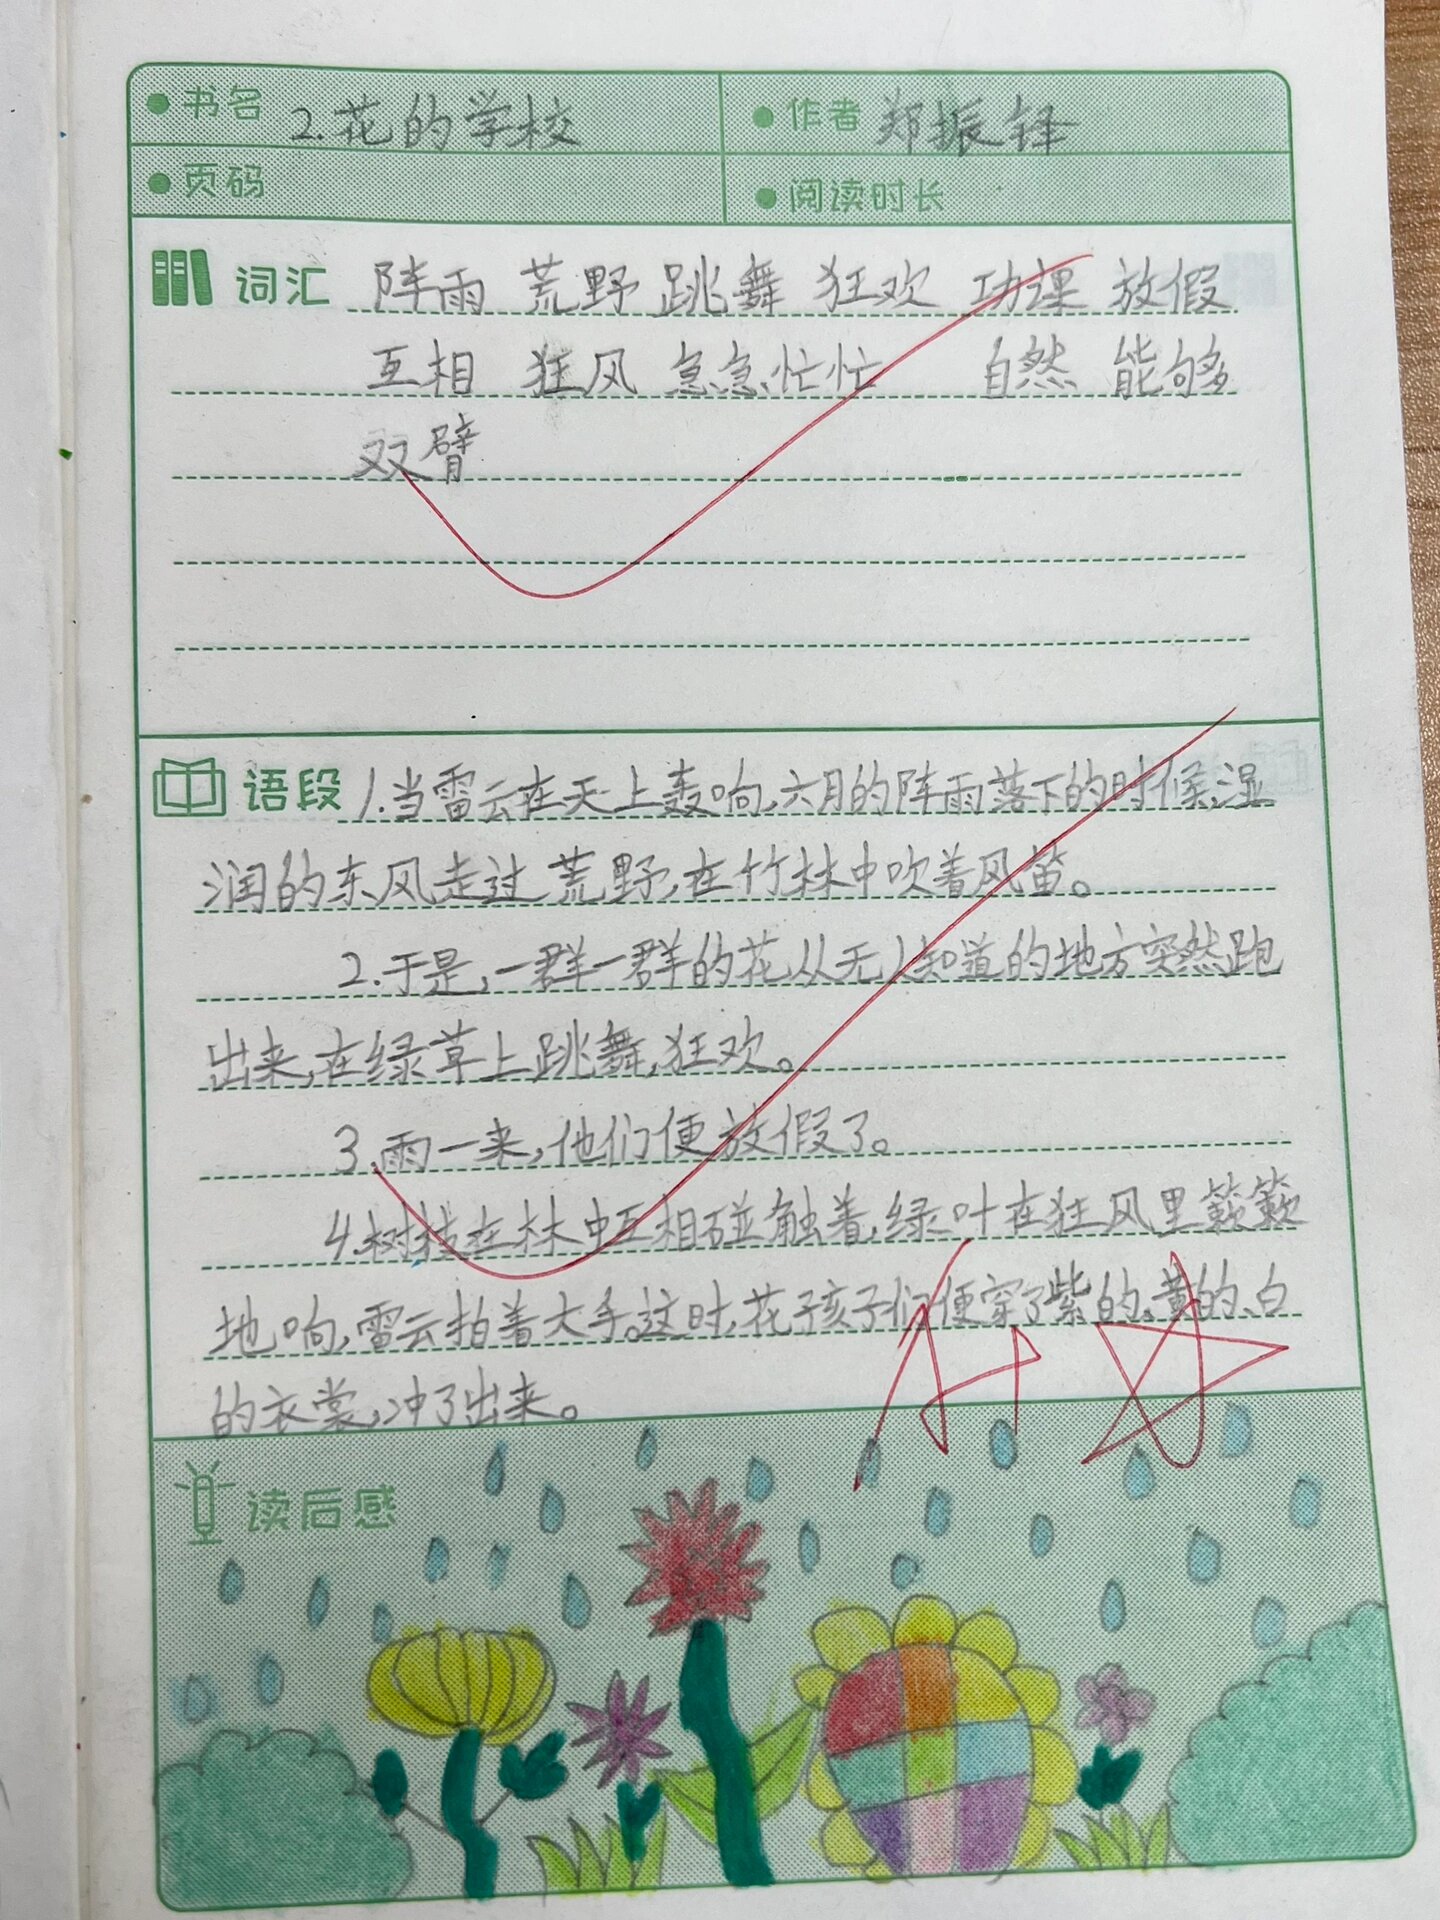 书名 2.花的学校 作者 郑振铎
页码 阅读时长
词汇 阵雨 荒野 跳舞 狂欢 功课 放假
互相 狂风 急急忙忙 自然 能够
双臂
语段 1.当雷云在天上轰响,六月的阵雨落下的时候,湿
润的东风走过荒野,在竹林中吹着风笛。
2.于是,一群一群的花从无人知道的地方突然跑
出来,在绿草上跳舞,狂欢。
3.雨一来,他们便放假了。
4.树枝在林中互相碰触着,绿叶在狂风里簌簌
地响,雷云拍着大手。这时,花孩子们便穿了紫的、黄的、白
的衣裳,冲了出来。
读后感